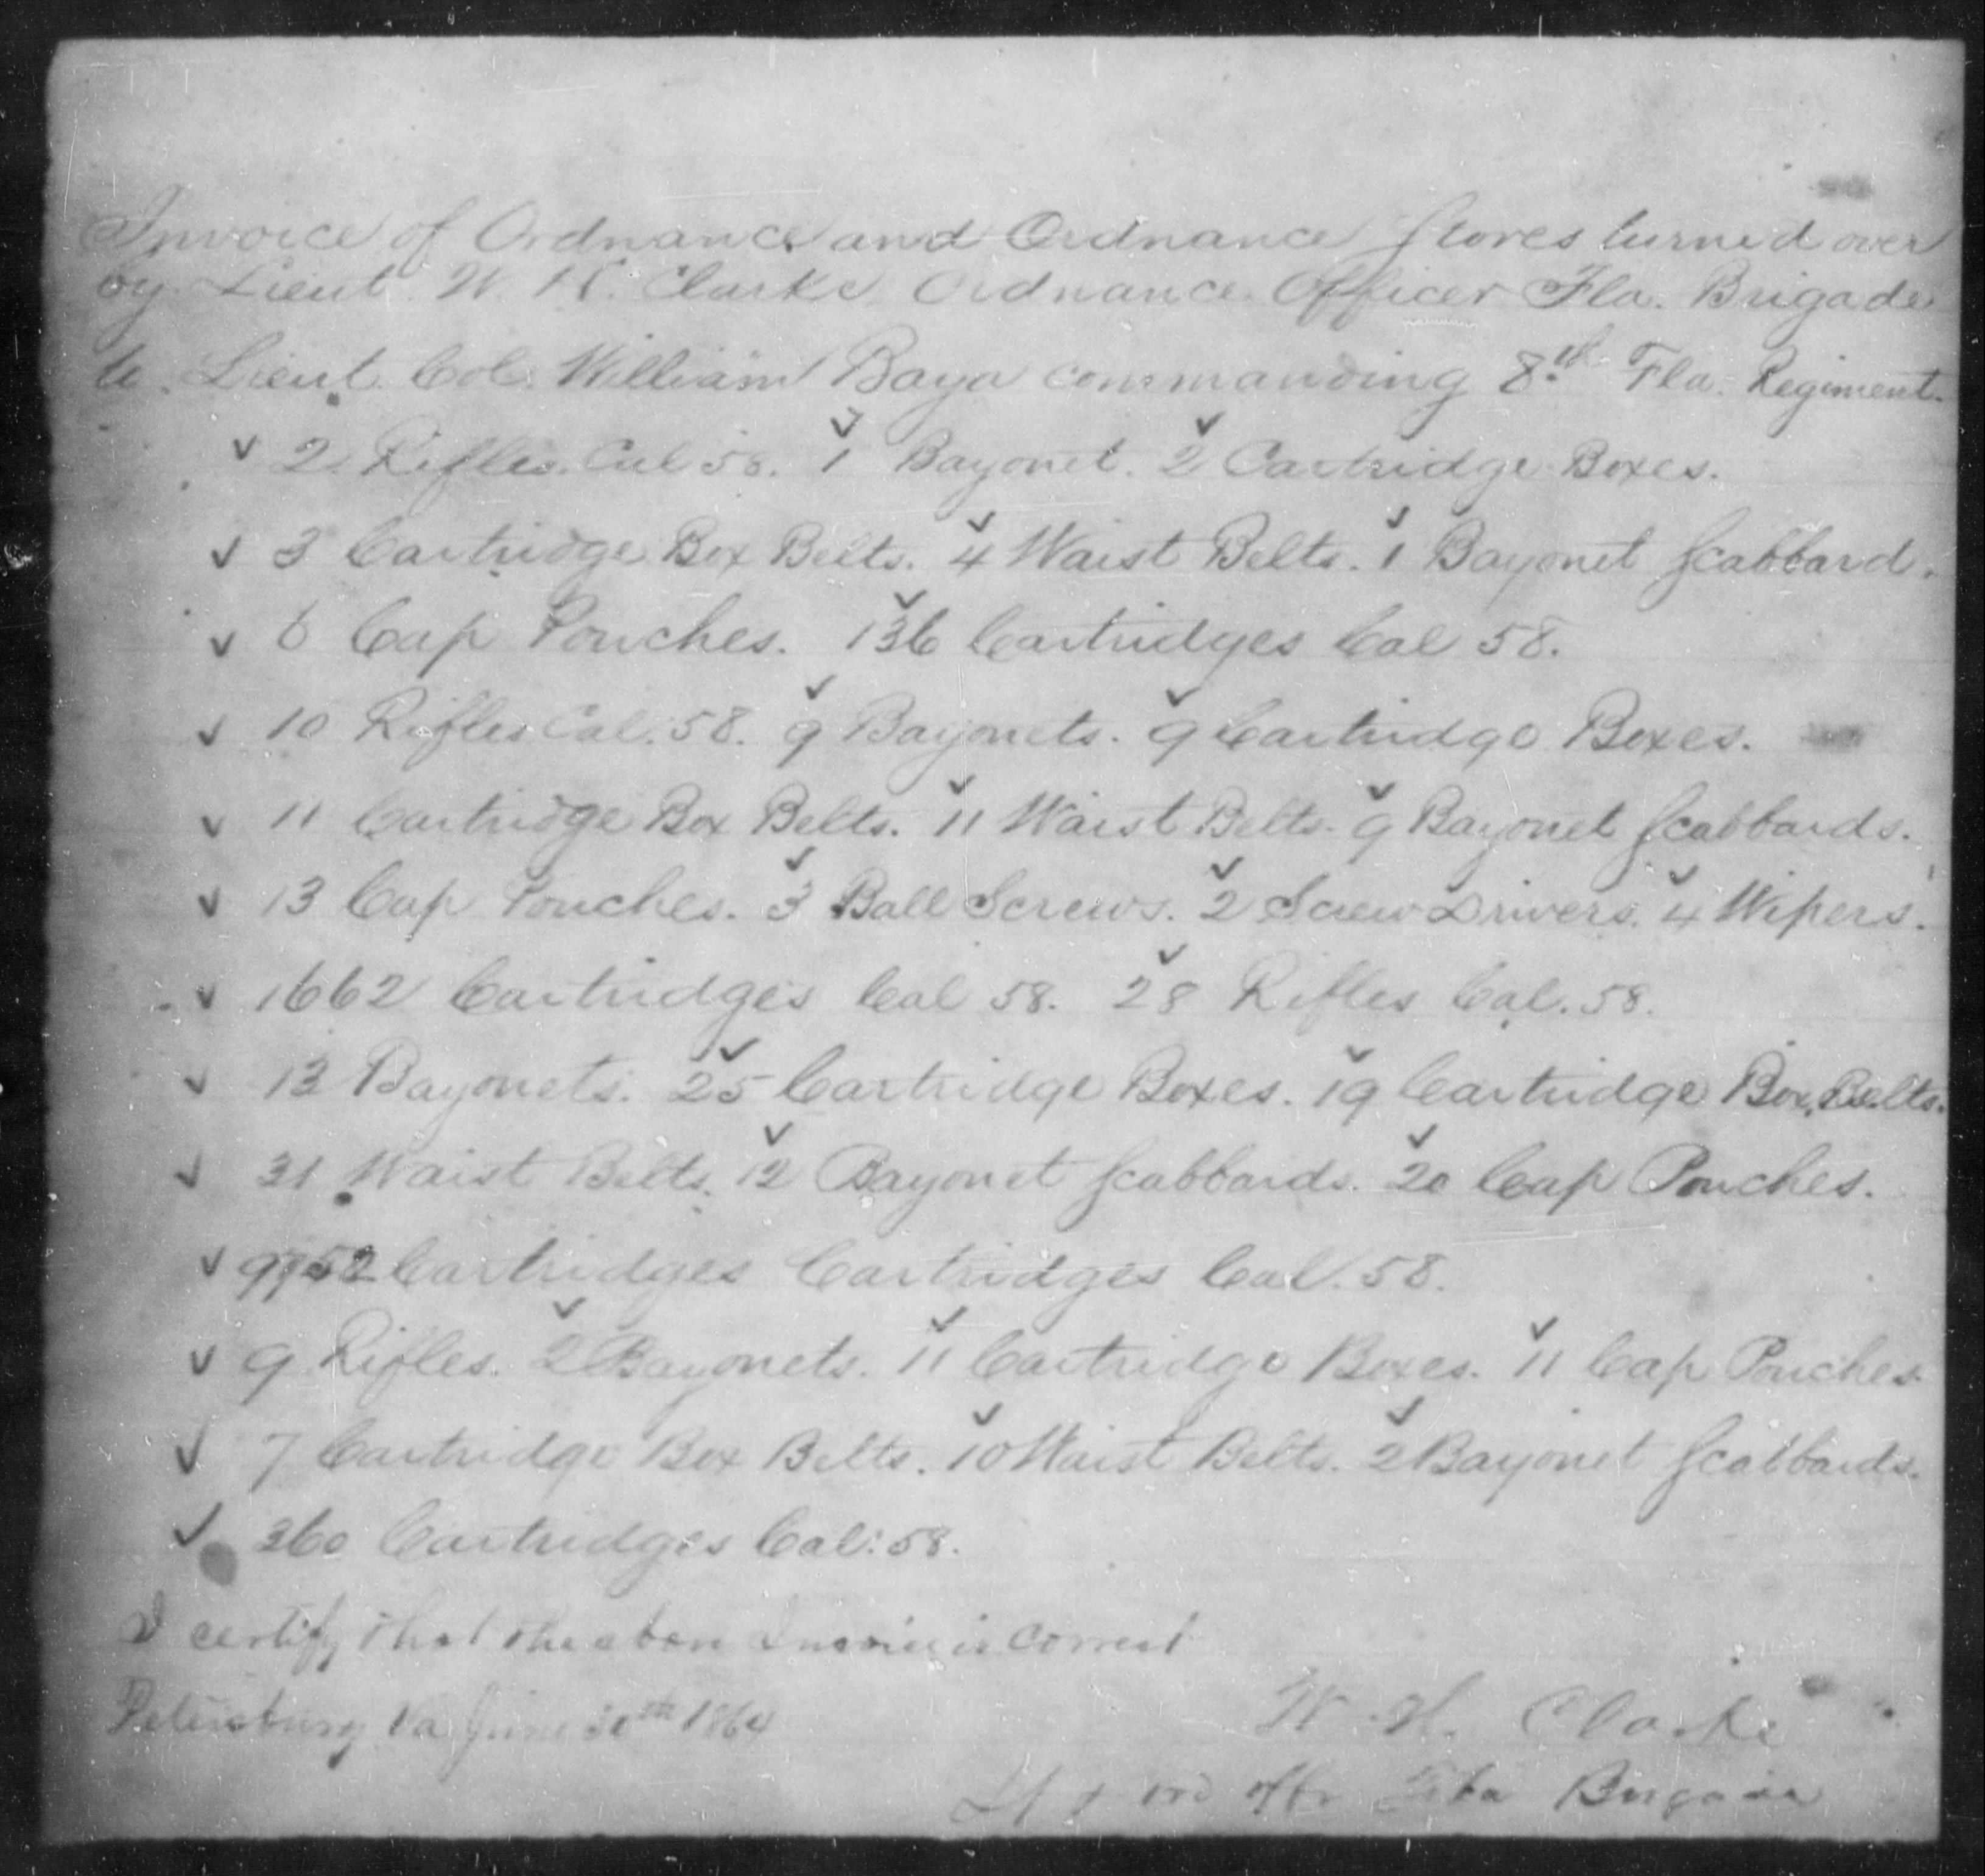 Invoice of Ordnance and Ordnance Stores turned over
by Lieut. W. H. Clarke Ordnance Officer Fla. Brigade
to Lieut. Col. William Baya commanding 8th Fla. Regiment.
✓ 2 Rifles. Cal 58. ✓ 1 Bayonet. ✓ 2 Cartridge Boxes.
✓ 3 Cartridge Box Belts. ✓ 4 Waist Belts. ✓ 1 Bayonet Scabbard.
✓ 6 Cap Pouches. ✓ 136 Cartridges Cal 58.
✓ 10 Rifles Cal. 58. ✓ 9 Bayonets. ✓ 9 Cartridge Boxes.
✓ 11 Cartridge Box Belts. ✓ 11 Waist Belts. ✓ 9 Bayonet Scabbards.
✓ 13 Cap Pouches. ✓ 3 Ball Screws. ✓ 2 Screw Drivers. ✓ 4 Wipers.
✓ 1662 Cartridges Cal 58. ✓ 28 Rifles Cal. 58.
✓ 13 Bayonets. ✓ 25 Cartridge Boxes. ✓ 19 Cartridge Box Belts.
✓ 31 Waist Belts. ✓ 12 Bayonet Scabbards. ✓ 20 Cap Pouches.
✓ Cartridges Cartridges Cal. 58.
✓ 9 Rifles. ✓ 2 Bayonets. ✓ 11 Cartridge Boxes. ✓ 11 Cap Pouches
✓ 7 Cartridge Box Belts. ✓ 10 Waist Belts. ✓ 2 Bayonet Scabbards.
✓ 360 Cartridges Cal: 58.
I certify that the above Invoice is correct
Petersburg Va June 30th 1864
W. H. Clarke
Lt & ord offr Fla Brigade